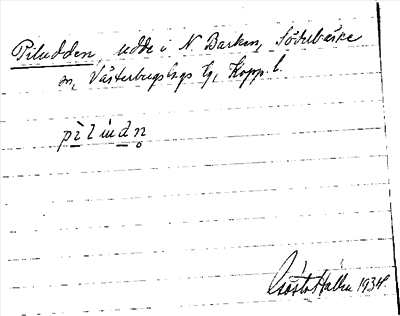 Piludden, udde i N Barken, Söderbärke
sn, Västerbergslags tg, Kopp. l.
pìlu̇dn̥
Gösta Hallin 1934.